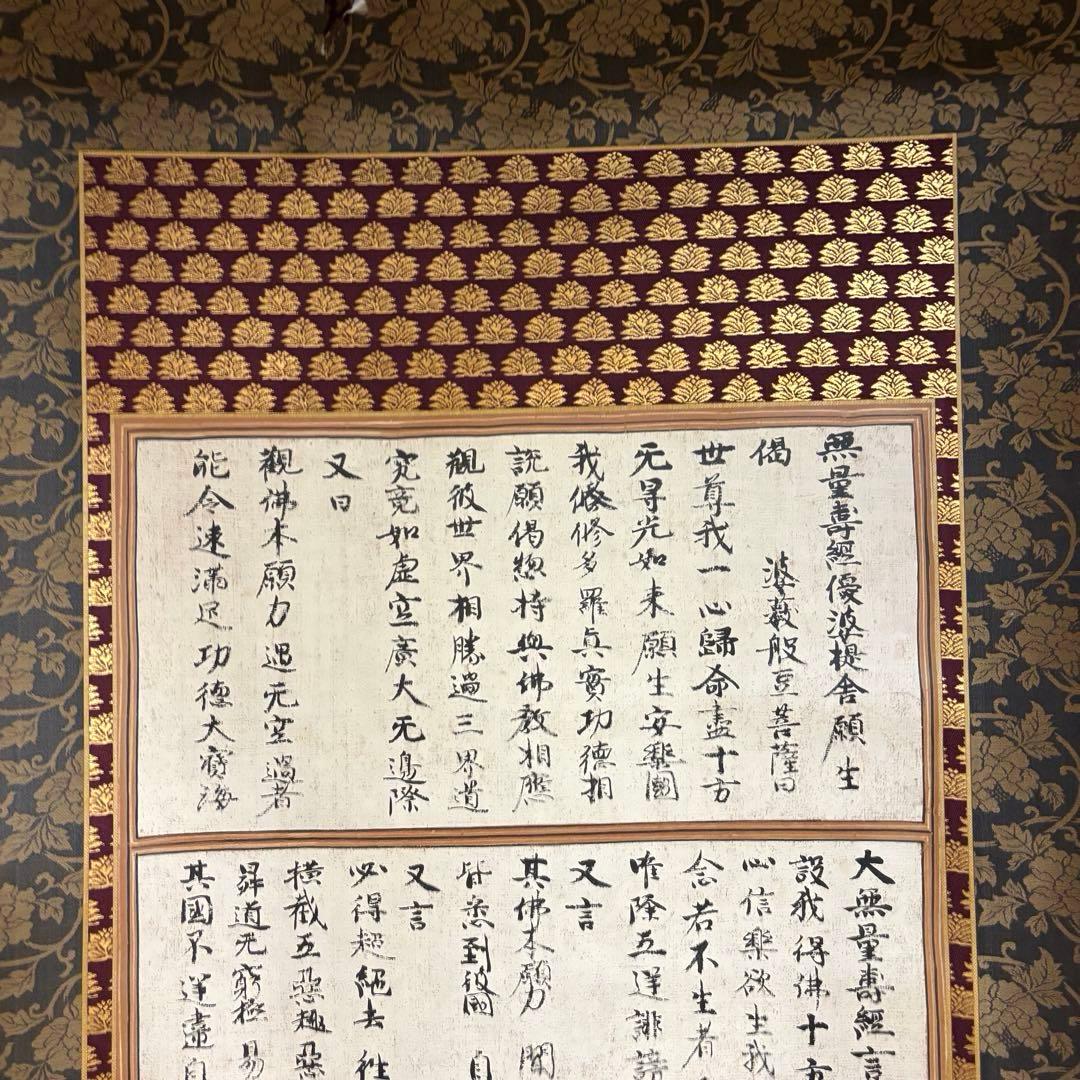 無量壽經優波提舍願生
偈
婆薮般豆菩薩曰
世尊我一心歸命盡十方
无㝵光如来願生安樂國
我依修多羅真實功德相
説願偈惣持與佛教相應
觀彼世界相勝過三界道
究竟如虚空廣大无邊際
又曰
觀佛本願力遇无空過者
能令速滿足功德大寶海
大無量壽經言
設我得佛十方
心信樂欲生我
念若不生者
唯除五逆誹謗
又言
其佛本願力聞
皆悉到彼國自
又言
必得超絕去往
横截五惡趣惡
昇道无窮極易
其國不逆違自